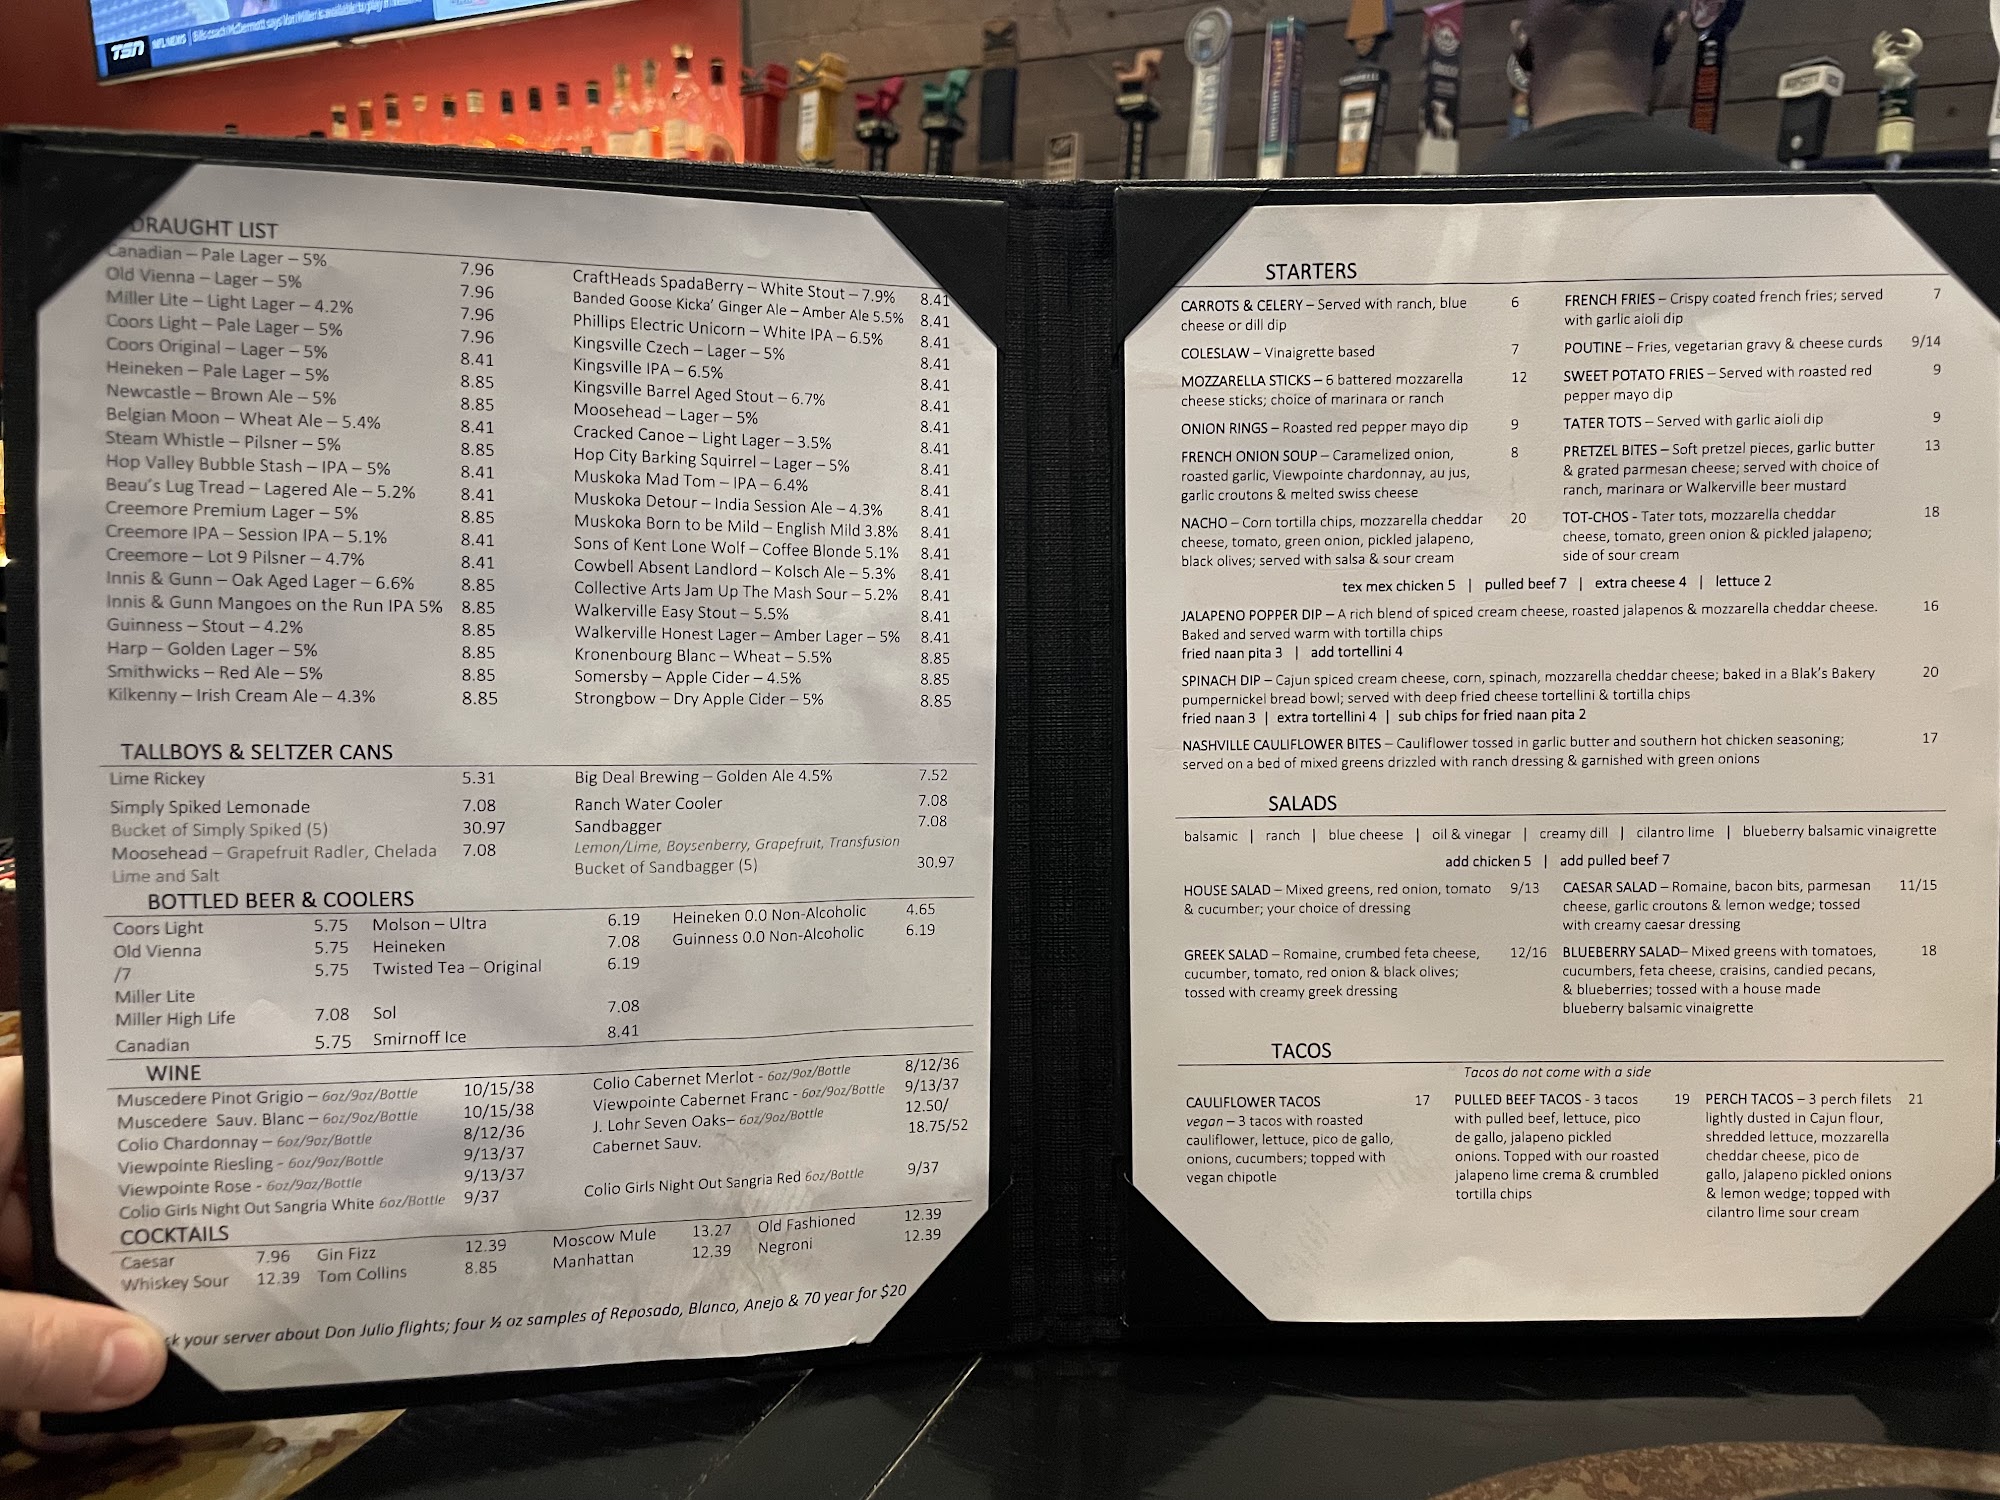 TSN NFL NEWS | Bills coach McDermott says Von Miller is available to play
DRAUGHT LIST
Canadian – Pale Lager – 5% 7.96
Old Vienna – Lager – 5% 7.96
Miller Lite – Light Lager – 4.2% 7.96
Coors Light – Pale Lager – 5% 7.96
Coors Original – Lager – 5% 8.41
Heineken – Pale Lager – 5% 8.85
Newcastle – Brown Ale – 5% 8.85
Belgian Moon – Wheat Ale – 5.4% 8.41
Steam Whistle – Pilsner – 5% 8.85
Hop Valley Bubble Stash – IPA – 5% 8.41
Beau's Lug Tread – Lagered Ale – 5.2% 8.41
Creemore Premium Lager – 5% 8.85
Creemore IPA – Session IPA – 5.1% 8.41
Creemore – Lot 9 Pilsner – 4.7% 8.41
Innis & Gunn – Oak Aged Lager – 6.6% 8.85
Innis & Gunn Mangoes on the Run IPA 5% 8.85
Guinness – Stout – 4.2% 8.85
Harp – Golden Lager – 5% 8.85
Smithwicks – Red Ale – 5% 8.85
Kilkenny – Irish Cream Ale – 4.3% 8.85
CraftHeads SpadaBerry – White Stout – 7.9% 8.41
Banded Goose Kicka' Ginger Ale – Amber Ale 5.5% 8.41
Phillips Electric Unicorn – White IPA – 6.5% 8.41
Kingsville Czech – Lager – 5% 8.41
Kingsville IPA – 6.5% 8.41
Kingsville Barrel Aged Stout – 6.7% 8.41
Moosehead – Lager – 5% 8.41
Cracked Canoe – Light Lager – 3.5% 8.41
Hop City Barking Squirrel – Lager – 5% 8.41
Muskoka Mad Tom – IPA – 6.4% 8.41
Muskoka Detour – India Session Ale – 4.3% 8.41
Muskoka Born to be Mild – English Mild 3.8% 8.41
Sons of Kent Lone Wolf – Coffee Blonde 5.1% 8.41
Cowbell Absent Landlord – Kolsch Ale – 5.3% 8.41
Collective Arts Jam Up The Mash Sour – 5.2% 8.41
Walkerville Easy Stout – 5.5% 8.41
Walkerville Honest Lager – Amber Lager – 5% 8.41
Kronenbourg Blanc – Wheat – 5.5% 8.85
Somersby – Apple Cider – 4.5% 8.85
Strongbow – Dry Apple Cider – 5% 8.85
TALLBOYS & SELTZER CANS
Lime Rickey 5.31
Simply Spiked Lemonade 7.08
Bucket of Simply Spiked (5) 30.97
Moosehead – Grapefruit Radler, Chelada 7.08
Lime and Salt
Big Deal Brewing – Golden Ale 4.5% 7.52
Ranch Water Cooler 7.08
Sandbagger 7.08
Lemon/Lime, Boysenberry, Grapefruit, Transfusion
Bucket of Sandbagger (5) 30.97
BOTTLED BEER & COOLERS
Coors Light 5.75 Molson – Ultra 6.19 Heineken 0.0 Non-Alcoholic 4.65
Old Vienna 5.75 Heineken 7.08 Guinness 0.0 Non-Alcoholic 6.19
/7 5.75 Twisted Tea – Original 6.19
Miller Lite
Miller High Life 7.08 Sol 7.08
Canadian 5.75 Smirnoff Ice 8.41
WINE
Muscedere Pinot Grigio – 6oz/9oz/Bottle 10/15/38
Muscedere Sauv. Blanc – 6oz/9oz/Bottle 10/15/38
Colio Chardonnay – 6oz/9oz/Bottle 8/12/36
Viewpointe Riesling - 6oz/9oz/Bottle 9/13/37
Viewpointe Rose - 6oz/9oz/Bottle 9/13/37
Colio Girls Night Out Sangria White 6oz/Bottle 9/37
Colio Cabernet Merlot - 6oz/9oz/Bottle 8/12/36
Viewpointe Cabernet Franc - 6oz/9oz/Bottle 9/13/37
J. Lohr Seven Oaks– 6oz/9oz/Bottle 12.50/
Cabernet Sauv. 18.75/52
Colio Girls Night Out Sangria Red 6oz/Bottle 9/37
COCKTAILS
Caesar 7.96 Gin Fizz 12.39 Moscow Mule 13.27 Old Fashioned 12.39
Whiskey Sour 12.39 Tom Collins 8.85 Manhattan 12.39 Negroni 12.39
sk your server about Don Julio flights; four ½ oz samples of Reposado, Blanco, Anejo & 70 year for $20
STARTERS
CARROTS & CELERY – Served with ranch, blue 6
cheese or dill dip
COLESLAW – Vinaigrette based 7
MOZZARELLA STICKS – 6 battered mozzarella 12
cheese sticks; choice of marinara or ranch
ONION RINGS – Roasted red pepper mayo dip 9
FRENCH ONION SOUP – Caramelized onion, 8
roasted garlic, Viewpointe chardonnay, au jus,
garlic croutons & melted swiss cheese
NACHO – Corn tortilla chips, mozzarella cheddar 20
cheese, tomato, green onion, pickled jalapeno,
black olives; served with salsa & sour cream
FRENCH FRIES – Crispy coated french fries; served 7
with garlic aioli dip
POUTINE – Fries, vegetarian gravy & cheese curds 9/14
SWEET POTATO FRIES – Served with roasted red 9
pepper mayo dip
TATER TOTS – Served with garlic aioli dip 9
PRETZEL BITES – Soft pretzel pieces, garlic butter 13
& grated parmesan cheese; served with choice of
ranch, marinara or Walkerville beer mustard
TOT-CHOS - Tater tots, mozzarella cheddar 18
cheese, tomato, green onion & pickled jalapeno;
side of sour cream
tex mex chicken 5 | pulled beef 7 | extra cheese 4 | lettuce 2
JALAPENO POPPER DIP – A rich blend of spiced cream cheese, roasted jalapenos & mozzarella cheddar cheese. 16
Baked and served warm with tortilla chips
fried naan pita 3 | add tortellini 4
SPINACH DIP – Cajun spiced cream cheese, corn, spinach, mozzarella cheddar cheese; baked in a Blak's Bakery 20
pumpernickel bread bowl; served with deep fried cheese tortellini & tortilla chips
fried naan 3 | extra tortellini 4 | sub chips for fried naan pita 2
NASHVILLE CAULIFLOWER BITES – Cauliflower tossed in garlic butter and southern hot chicken seasoning; 17
served on a bed of mixed greens drizzled with ranch dressing & garnished with green onions
SALADS
balsamic | ranch | blue cheese | oil & vinegar | creamy dill | cilantro lime | blueberry balsamic vinaigrette
add chicken 5 | add pulled beef 7
HOUSE SALAD – Mixed greens, red onion, tomato 9/13
& cucumber; your choice of dressing
GREEK SALAD – Romaine, crumbed feta cheese, 12/16
cucumber, tomato, red onion & black olives;
tossed with creamy greek dressing
CAESAR SALAD – Romaine, bacon bits, parmesan 11/15
cheese, garlic croutons & lemon wedge; tossed
with creamy caesar dressing
BLUEBERRY SALAD– Mixed greens with tomatoes, 18
cucumbers, feta cheese, craisins, candied pecans,
& blueberries; tossed with a house made
blueberry balsamic vinaigrette
TACOS
Tacos do not come with a side
CAULIFLOWER TACOS 17
vegan – 3 tacos with roasted
cauliflower, lettuce, pico de gallo,
onions, cucumbers; topped with
vegan chipotle
PULLED BEEF TACOS - 3 tacos 19
with pulled beef, lettuce, pico
de gallo, jalapeno pickled
onions. Topped with our roasted
jalapeno lime crema & crumbled
tortilla chips
PERCH TACOS – 3 perch filets 21
lightly dusted in Cajun flour,
shredded lettuce, mozzarella
cheddar cheese, pico de
gallo, jalapeno pickled onions
& lemon wedge; topped with
cilantro lime sour cream